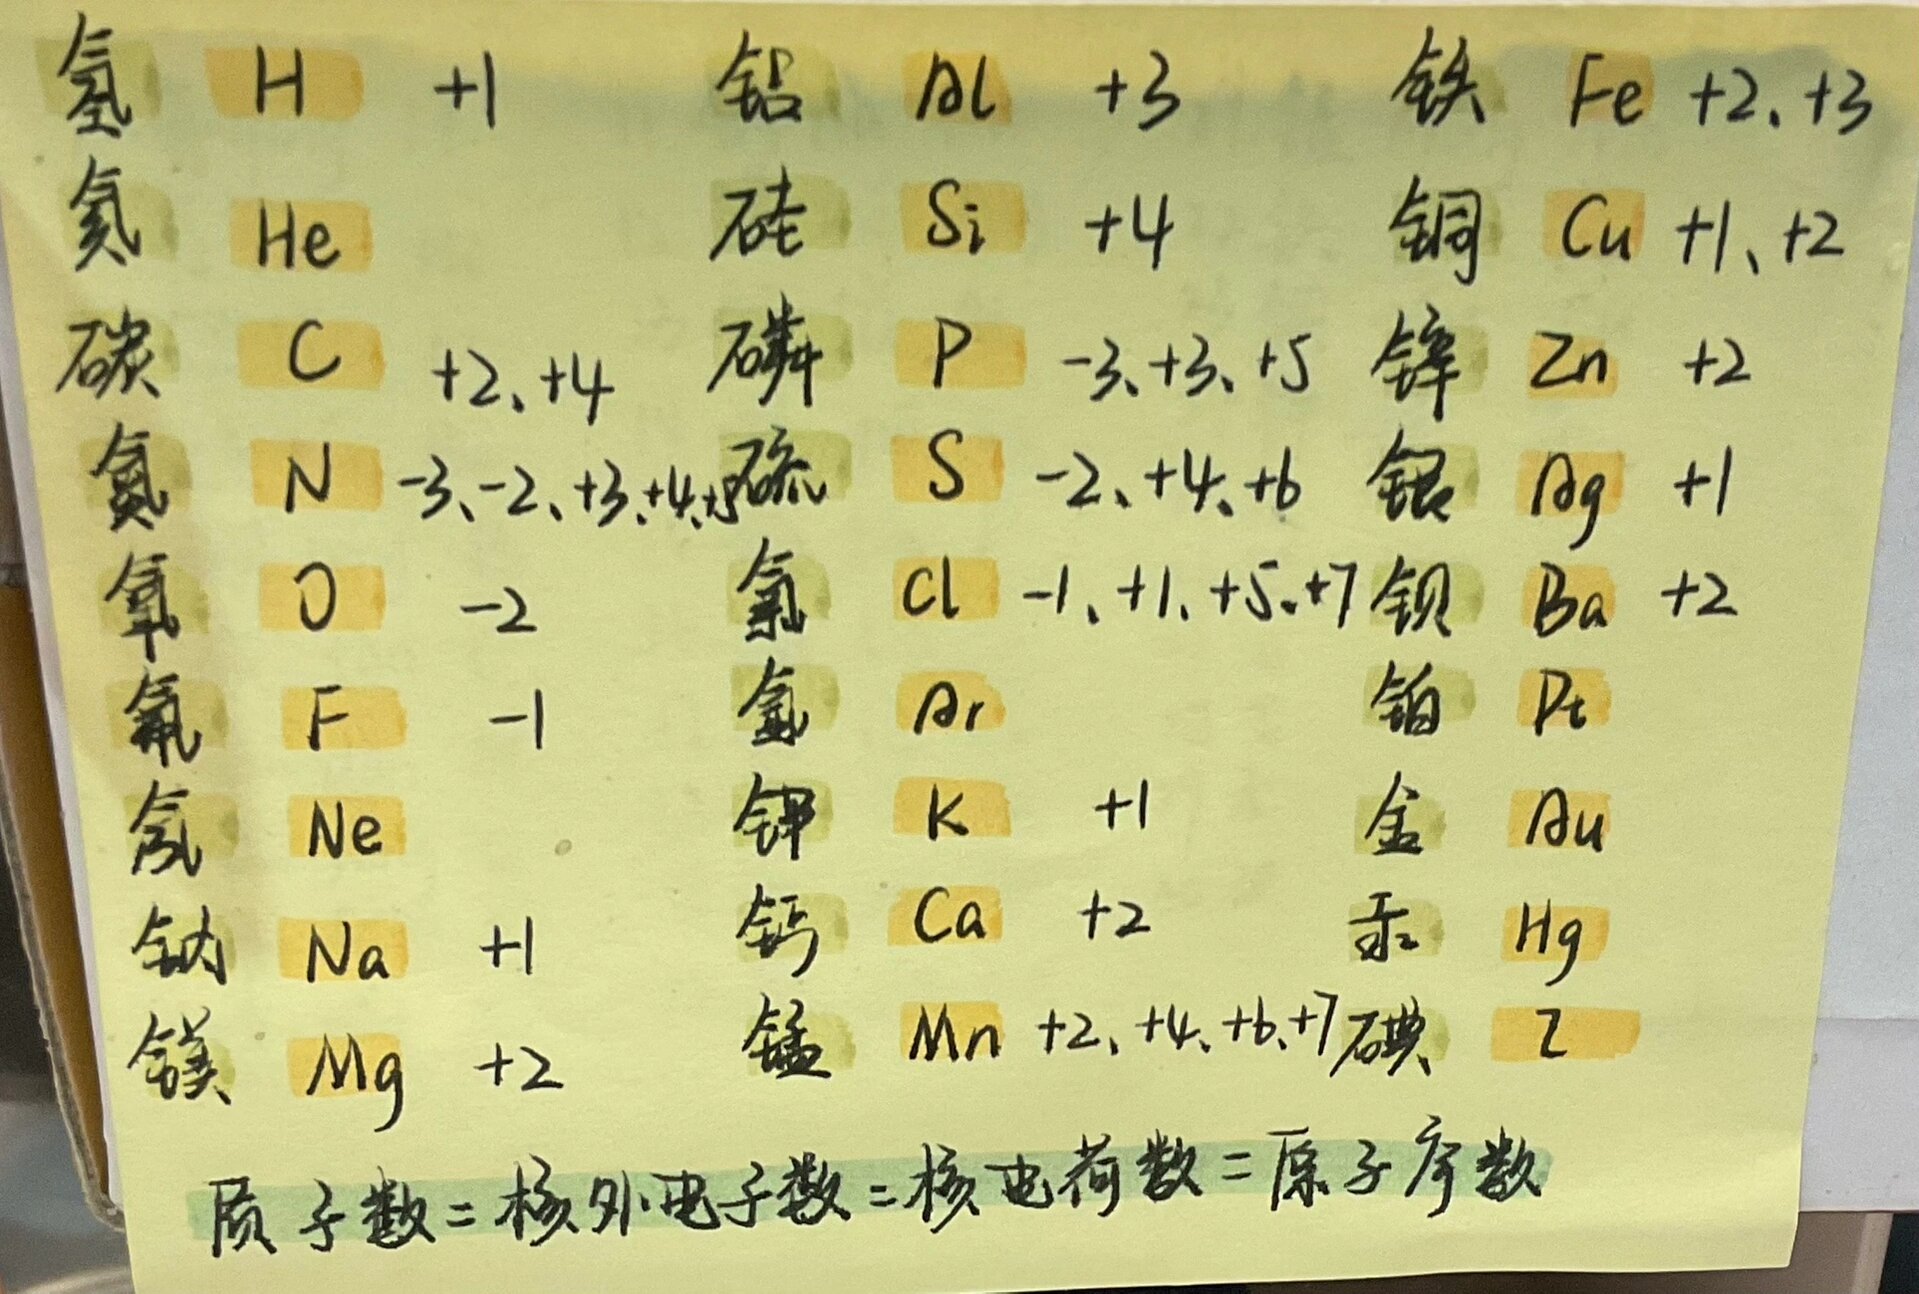 氢 H +1 铝 Al +3 铁 Fe +2、+3
氦 He 硅 Si +4 铜 Cu +1、+2
碳 C +2、+4 磷 P -3、+3、+5 锌 Zn +2
氮 N -3、-2、+3、+4、+5 硫 S -2、+4、+6 银 Ag +1
氧 O -2 氯 Cl -1、+1、+5、+7 钡 Ba +2
氟 F -1 氩 Ar 铂 Pt
氖 Ne 钾 K +1 金 Au
钠 Na +1 钙 Ca +2 汞 Hg
镁 Mg +2 锰 Mn +2、+4、+6、+7 碘 I
质子数=核外电子数=核电荷数=原子序数